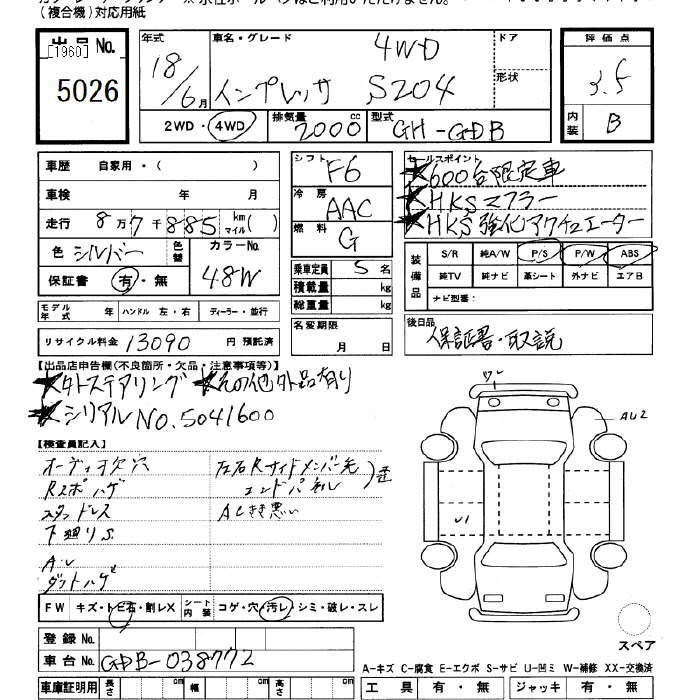 (複合機)対応用紙
出品No.
[1960]
5026
年式
18/6月
車名・グレード
4WD
インプレッサ S204
ドア
形状
評価点
3.5
内装
B
2WD・4WD
排気量
2000 cc
型式
GH-GDB
車歴 自家用・( )
車検 年 月
走行 8万7千885 km マイル( )
色 シルバー
色替
カラーNo.
48W
保証書 有・無
シフト
F6
冷房
AAC
燃料
G
乗車定員 5名
積載量 kg
総重量 kg
セールスポイント
★600台限定車
★HKSマフラー
★HKS強化アクチュエーター
装備品
S/R 純A/W P/S P/W ABS
純TV 純ナビ 革シート 外ナビ エアB
ナビ型番:
モデル年式 年 ハンドル 左・右 ディーラー・並行
リサイクル料金 13090 円 預託済
名変期限
月 日
後日品
保証書・取説
【出品店申告欄(不良箇所・欠品・注意事項等)】
★外ステアリング ★その他外品有り
★シリアルNO.5041600
【検査員記入】
オーディオ欠穴
Rスポハゲ
スタッドレス
下廻りS
左右Rサイドメンバー先
エンドパネル
ACきき悪い
AU2
U1
FW キズ・トビ石・割レX
シート内装 コゲ・穴・汚レ・シミ・破レ・スレ
登録No.
車台No. GDB-038772
スペア
A-キズ C-腐食 E-エクボ S-サビ U-凹ミ W-補修 XX-交換済
車庫証明用 長さ cm 幅 cm 高さ cm
工具 有・無 ジャッキ 有・無